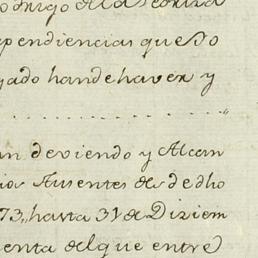 odrigo de la
pendiencias que so
gado han de haver y
an deviendo y Alcan
Ausentes de dcho
73, hasta 31 de Diziem
enta del que entre